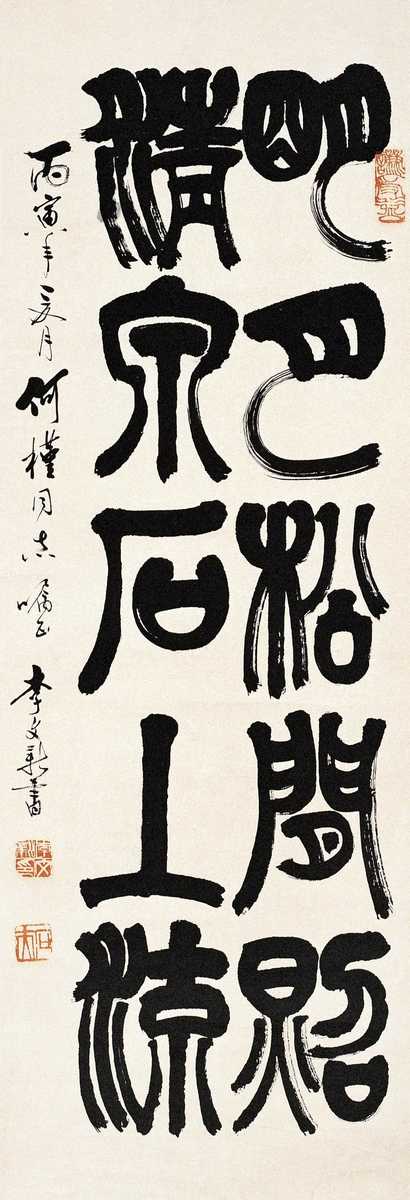 明月松間照
清泉石上流
丙寅年夏月 何 同志嘱正 李文新書